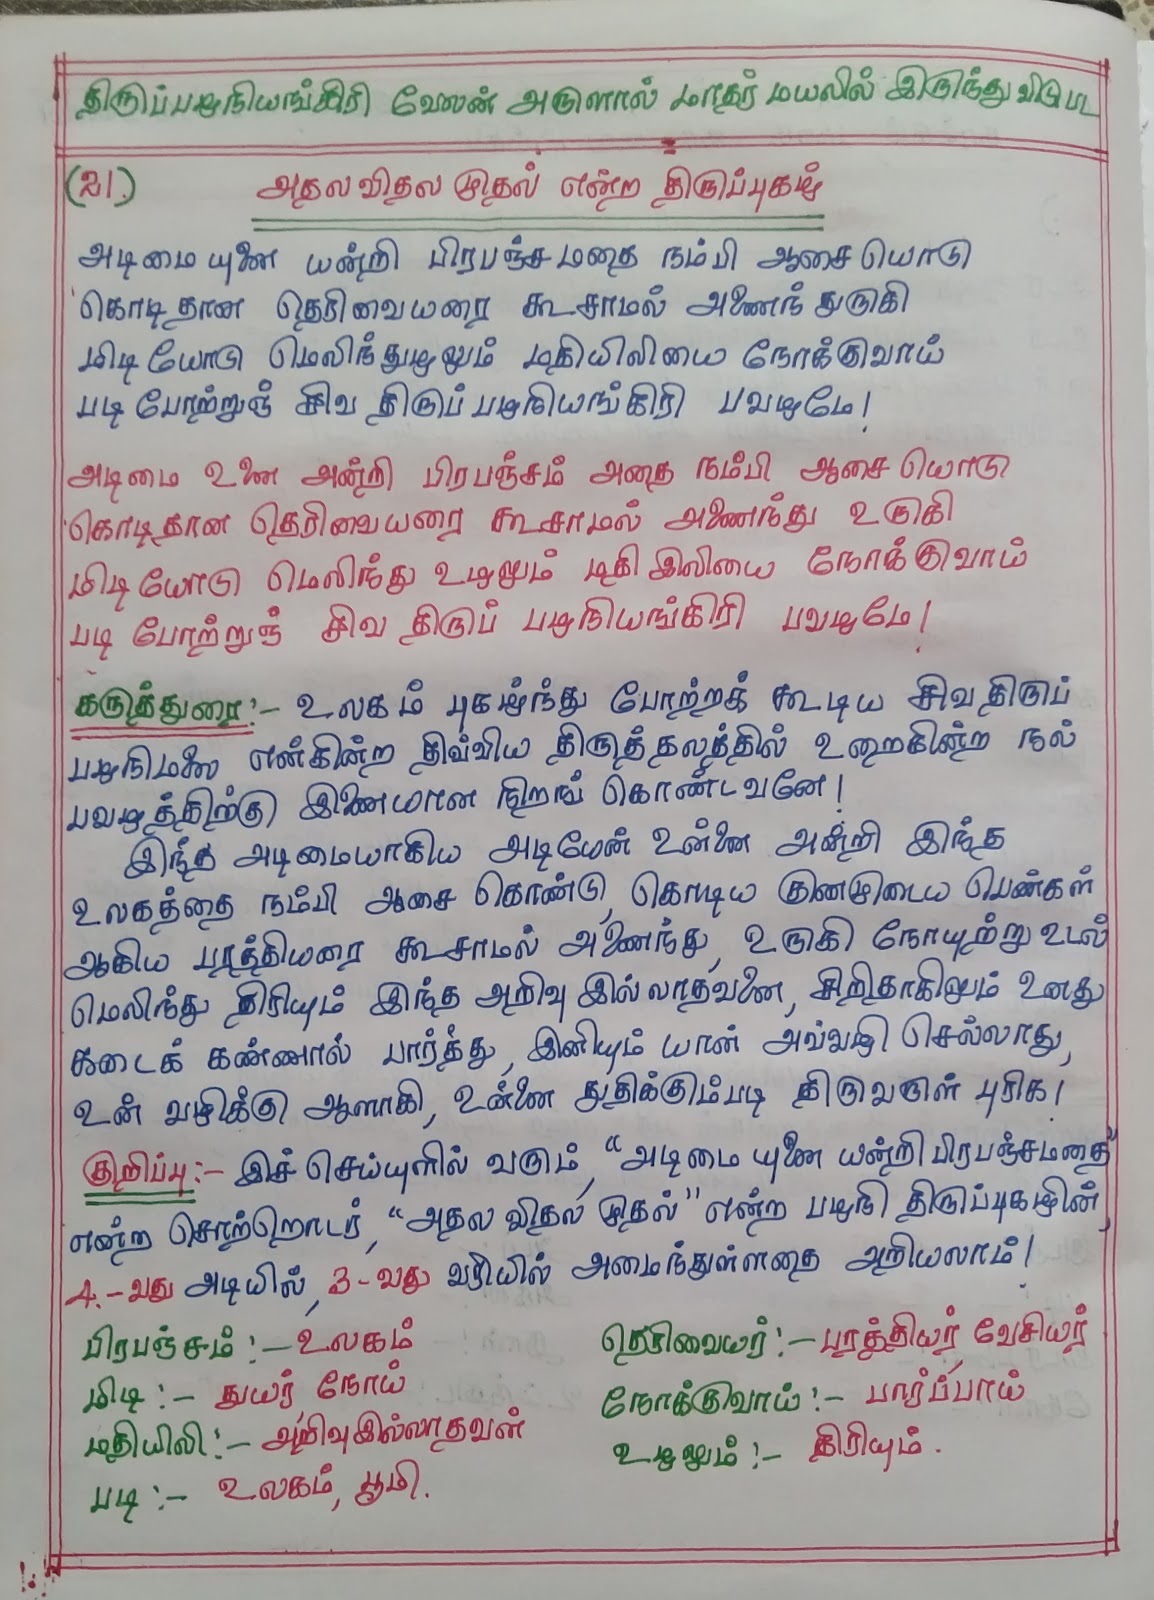 திருப்பழநியங்கிரி வேலன் அருளால் மாதர் மயலில் இருந்து விடுபட
(21.) அதல விதல முதல் என்ற திருப்புகழ்
அடிமை யுனை யன்றி பிரபஞ்ச மதை நம்பி ஆசை யொடு
கொடிதான தெரிவையரை கூசாமல் அணைந் துருகி
மிடி யோடு மெலிந்துழலும் மதியிலியை நோக்குவாய்
படி போற்றுஞ் சிவ திருப் பழநியங்கிரி பவழமே!
அடிமை உனை அன்றி பிரபஞ்சம் அதை நம்பி ஆசை யொடு
கொடிதான தெரிவையரை கூசாமல் அணைந்து உருகி
மிடி யோடு மெலிந்து உழலும் மதி இலியை நோக்குவாய்
படி போற்றுஞ் சிவ திருப் பழநியங்கிரி பவழமே!
கருத்துரை:- உலகம் புகழ்ந்து போற்றக் கூடிய சிவ திருப்
பழநிமலை என்கின்ற திவ்விய திருத்தலத்தில் உறைகின்ற நல்
பவழத்திற்கு இணையான நிறங் கொண்டவனே!
இந்த அடிமையாகிய அடியேன் உன்னை அன்றி இந்த
உலகத்தை நம்பி ஆசை கொண்டு, கொடிய குணமுடைய பெண்கள்
ஆகிய பரத்தியரை கூசாமல் அணைந்து, உருகி நோயுற்று உடல்
மெலிந்து திரியும் இந்த அறிவு இல்லாதவனை, சிறிதாகிலும் உனது
கடைக் கண்ணால் பார்த்து, இனியும் யான் அவ்வழி செல்லாது,
உன் வழிக்கு ஆளாகி, உன்னை துதிக்கும்படி திருவருள் புரிக!
குறிப்பு:- இச் செய்யுளில் வரும், "அடிமை யுனை யன்றி பிரபஞ்சமதை"
என்ற சொற்றொடர், "அதல விதல முதல்" என்ற பழநி திருப்புகழின்,
4.-வது அடியில், 3-வது வரியில் அமைந்துள்ளதை அறியலாம்!
பிரபஞ்சம்:- உலகம் தெரிவையர்:- பரத்தியர், வேசியர்
மிடி:- துயர், நோய் நோக்குவாய்:- பார்ப்பாய்
மதியிலி:- அறிவுஇல்லாதவன் உழலும்:- திரியும்.
படி:- உலகம், பூமி.